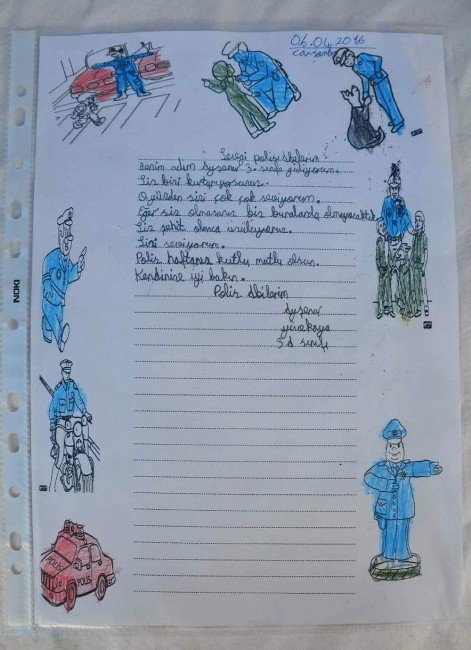 06.04.2016
Çarşamba
Sevgi polis Abilerim
Benim adım Aysena 3. sınıfa gidiyorum.
Siz bizi kurtarıyorsunuz.
O yüzden sizi çok çok seviyorum.
Eğer siz olmasanız biz buralarda olmayacaktık.
Siz şehit olunca üzülüyoruz.
Sizi seviyorum.
Polis haftanız kutlu mutlu olsun.
Kendinize iyi bakın.
Polis Abilerim
3 d sınıfı
POLİS
POLİS